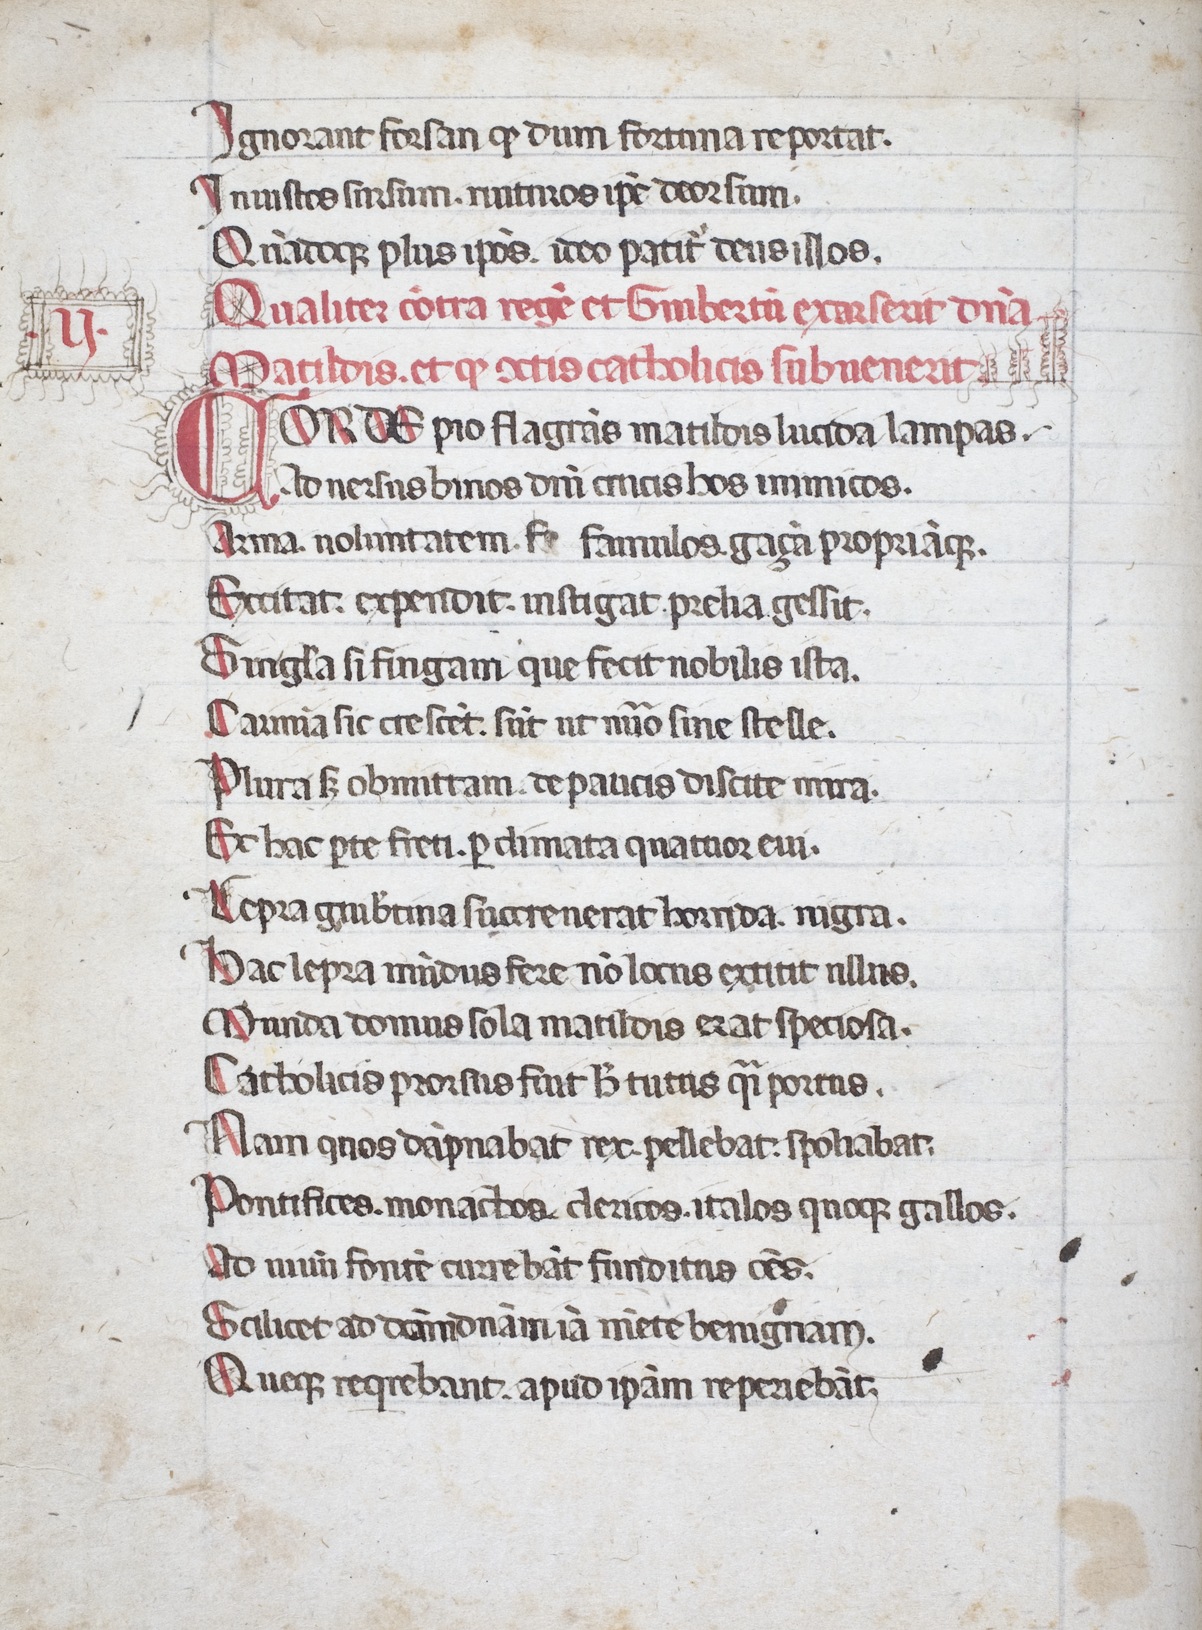 Ignorant forsan qꝫ dum fortuna reportat.
Iniustos sursum. ruituros ip̄e deorsum.
Qn̄adoqꝫ plus ip̄os. ideo patit᷑ deus illos.
.ij.
Qualiter cōtra regē et Guibertū exarserit dn̄a
Matildis. et qꝫ xctis catholicis subuenerit
CORDE pio flagrās matildis lucida lampas.
Aduersus binos dn̄i crucis hos inimicos.
Arma. uoluntatem. famulos. gaçā propriāqꝫ.
Excitat. expendit. instigat. prelia gessit.
Singl̄a si fingam que fecit nobilis ista.
Carmīa sic crescēt. sūt ut nūo sine stelle.
Plura sꝫ obmittam. de paucis discite mira.
Ex hac ꝑte freti. ꝑ climata quatuor eui.
Lepra guib̄tina succreuerat horrida. nigra.
Hac lepra mūdus fere nō locus extitit ullus.
Munda domus sola matildis erat speciosa.
Catholicis prorsus fuit h̄ tutus qͣi portus.
Nam quos dāpnabat rex. pellebat. spoliabat.
Pontifices. monachos. clericos. italos quoqꝫ gallos.
Ad uiuū fontē currebāt funditus oēs.
Scilicet ad dcām dn̄am iā mēte benignam.
Queqꝫ reqrebant. apud ip̄am reperiebāt.